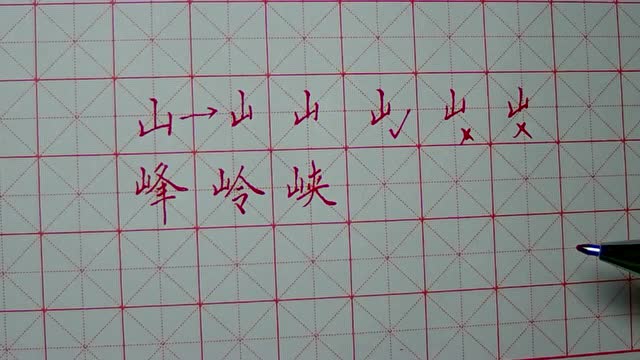 山→山 山 山✓ 山× 山×
峰岭峡